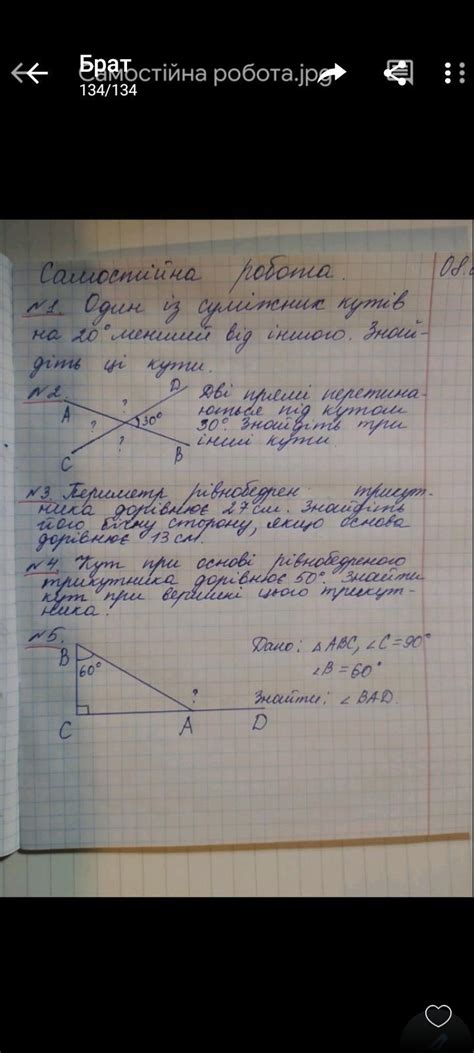 Брат
Самостійна робота.jpg
134/134
Самостійна робота.
08.
№1. Один із суміжних кутів
на 20° менший від іншого. Знай-
діть ці кути.
№2.
D
A
?
?
30°
?
C
B
Дві прямі перетина-
ються під кутом
30°. Знайдіть три
інші кути
№3 Периметр рівнобедрен трикут-
ника дорівнює 27 см. Знайдіть
його бічну сторону, якщо основа
дорівнює 13 см.
№4. Кут при основі рівнобедреного
трикутника дорівнює 50°. Знайти
кут при вершині цього трикут-
ника.
№5.
B
60°
?
C
A
D
Дано: △ABC, ∠C=90°
∠B=60°
Знайти: ∠BAD.